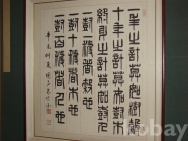 一年之計莫如樹穀
十年之計莫如樹木
終身之計莫如樹人
一樹一獲者穀也
一樹十獲者木也
一樹百獲者人也